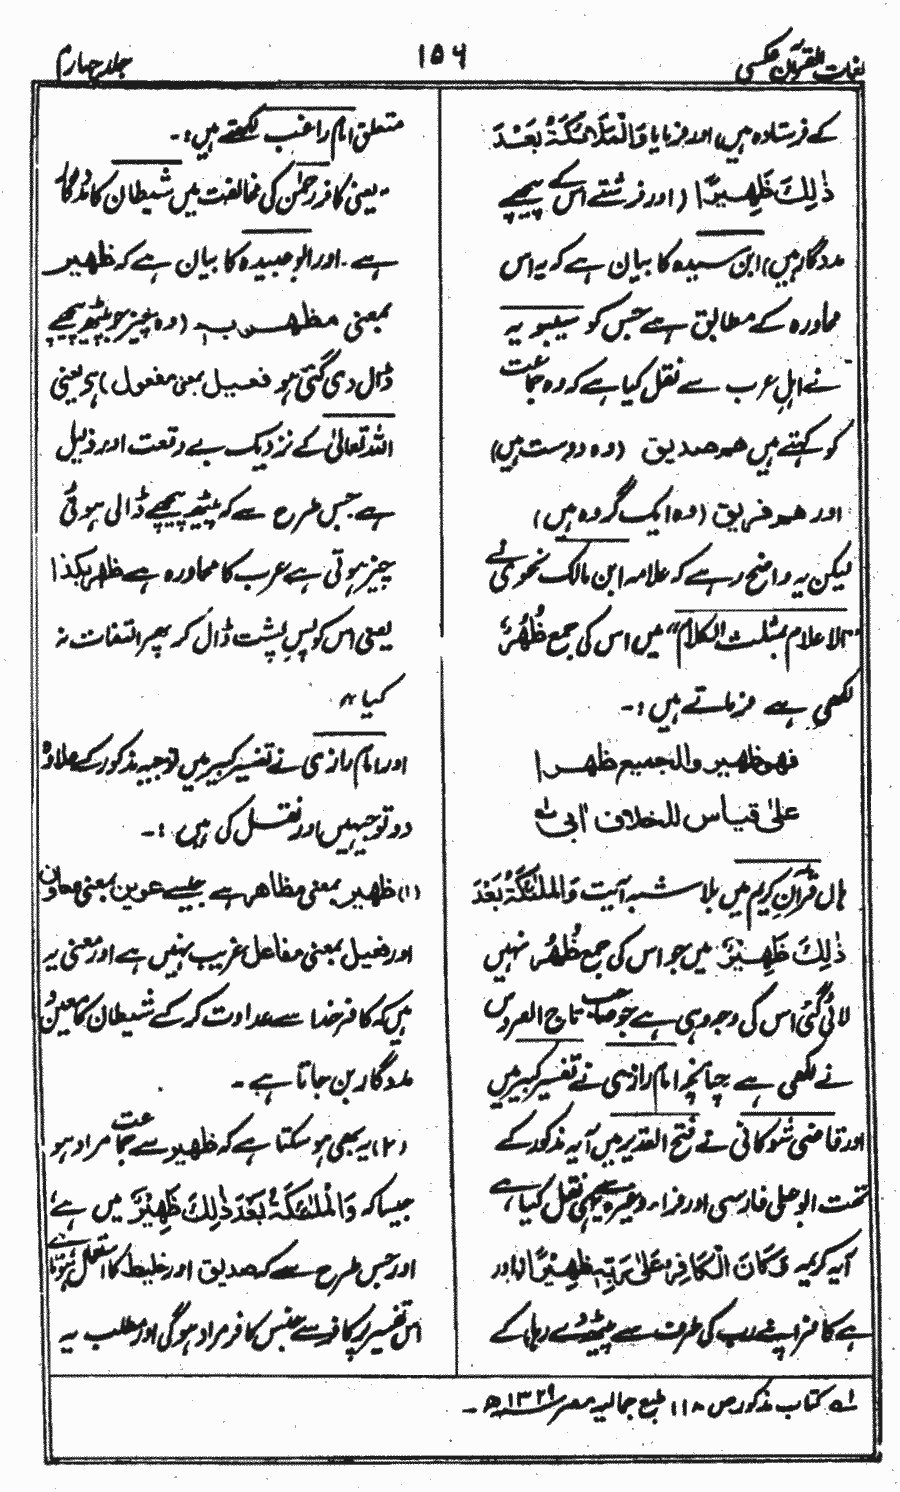 لغات القرآن عکسی
۱۵۶
جلد چہارم
کے فرستادہ ہیں) اور فرمایا وَالْمَلٰٓئِكَةُ بَعْدَ
ذٰلِكَ ظَهِيْرٌ (اور فرشتے اس کے پیچھے
مددگار ہیں) ابن سیدہ کا بیان ہے کہ یہ اس
محاورہ کے مطابق ہے جس کو سیبویہ
نے اہلِ عرب سے نقل کیا ہے کہ وہ جماعت
کو کہتے ہیں ھم صدیق (وہ دوست ہیں)
اور ھم فریق (وہ ایک گروہ ہیں)
لیکن یہ واضح رہے کہ علامہ ابن مالک نحوی نے
"الاعلام بمثلث الکلام" میں اس کی جمع ظُهُرٌ
لکھی ہے فرماتے ہیں :-
فهو ظهير والجميع ظهر
على قياس للخلاف ابى له
ہاں قرآن کریم میں بلاشبہ آیت وَالْمَلٰٓئِكَةُ بَعْدَ
ذٰلِكَ ظَهِيْرٌ میں جو اس کی جمع ظُهُرٌ نہیں
لائی گئی اس کی وجہ وہی ہے جو صاحب تاج العروس
نے لکھی ہے چنانچہ امام رازی نے تفسیر کبیر میں
اور قاضی شوکانی نے فتح القدیر میں آیہ مذکور کے
تحت ابو علی فارسی اور فراء وغیرہ سے یہی نقل کیا ہے
آیہ کریمہ وَكَانَ الْكَافِرُ عَلٰى رَبِّهٖ ظَهِيْرًا (اور
ہے کافر اپنے رب کی طرف سے پیٹھ دے رہا) کے
متعلق امام راغب لکھتے ہیں :-
"یعنی کافر رحمٰن کی مخالفت میں شیطان کا مددگار
ہے۔ اور ابو عبیدہ کا بیان ہے کہ ظهير
بمعنی مظهور به (وہ چیز جو پیٹھ پیچھے
ڈال دی گئی ہو فعیل بمعنی مفعول) ہے یعنی
اللہ تعالیٰ کے نزدیک بے وقعت اور ذلیل
ہے جس طرح سے کہ پیٹھ پیچھے ڈالی ہوئی
چیز ہوتی ہے عرب کا محاورہ ہے ظهر بكذا
یعنی اس کو پسِ پشت ڈال کر پھر التفات نہ
کیا"
اور امام رازی نے تفسیر کبیر میں توجیہ مذکور کے علاوہ
دو توجیہیں اور نقل کی ہیں :-
(۱) ظهير بمعنی مظاهر ہے جیسے عوین بمعنی معاون
اور فعیل بمعنی مفاعل غریب نہیں ہے اور معنی یہ
ہیں کہ کافر خدا سے عداوت کر کے شیطان کا معین و
مددگار بن جاتا ہے -
(۲) یہ بھی ہو سکتا ہے کہ ظهير سے جماعت مراد ہو
جیسا کہ وَالْمَلٰٓئِكَةُ بَعْدَ ذٰلِكَ ظَهِيْرٌ میں ہے،
اور جس طرح سے کہ صدیق اور خلیط کا استعمال ہوتا ہے
اس تفسیر پر کافر سے جنس کافر مراد ہوگی اور مطلب یہ
لہ کتاب مذکور ص ۱۱۸ طبع جمالیہ مصر ۱۳۲۹ھ -